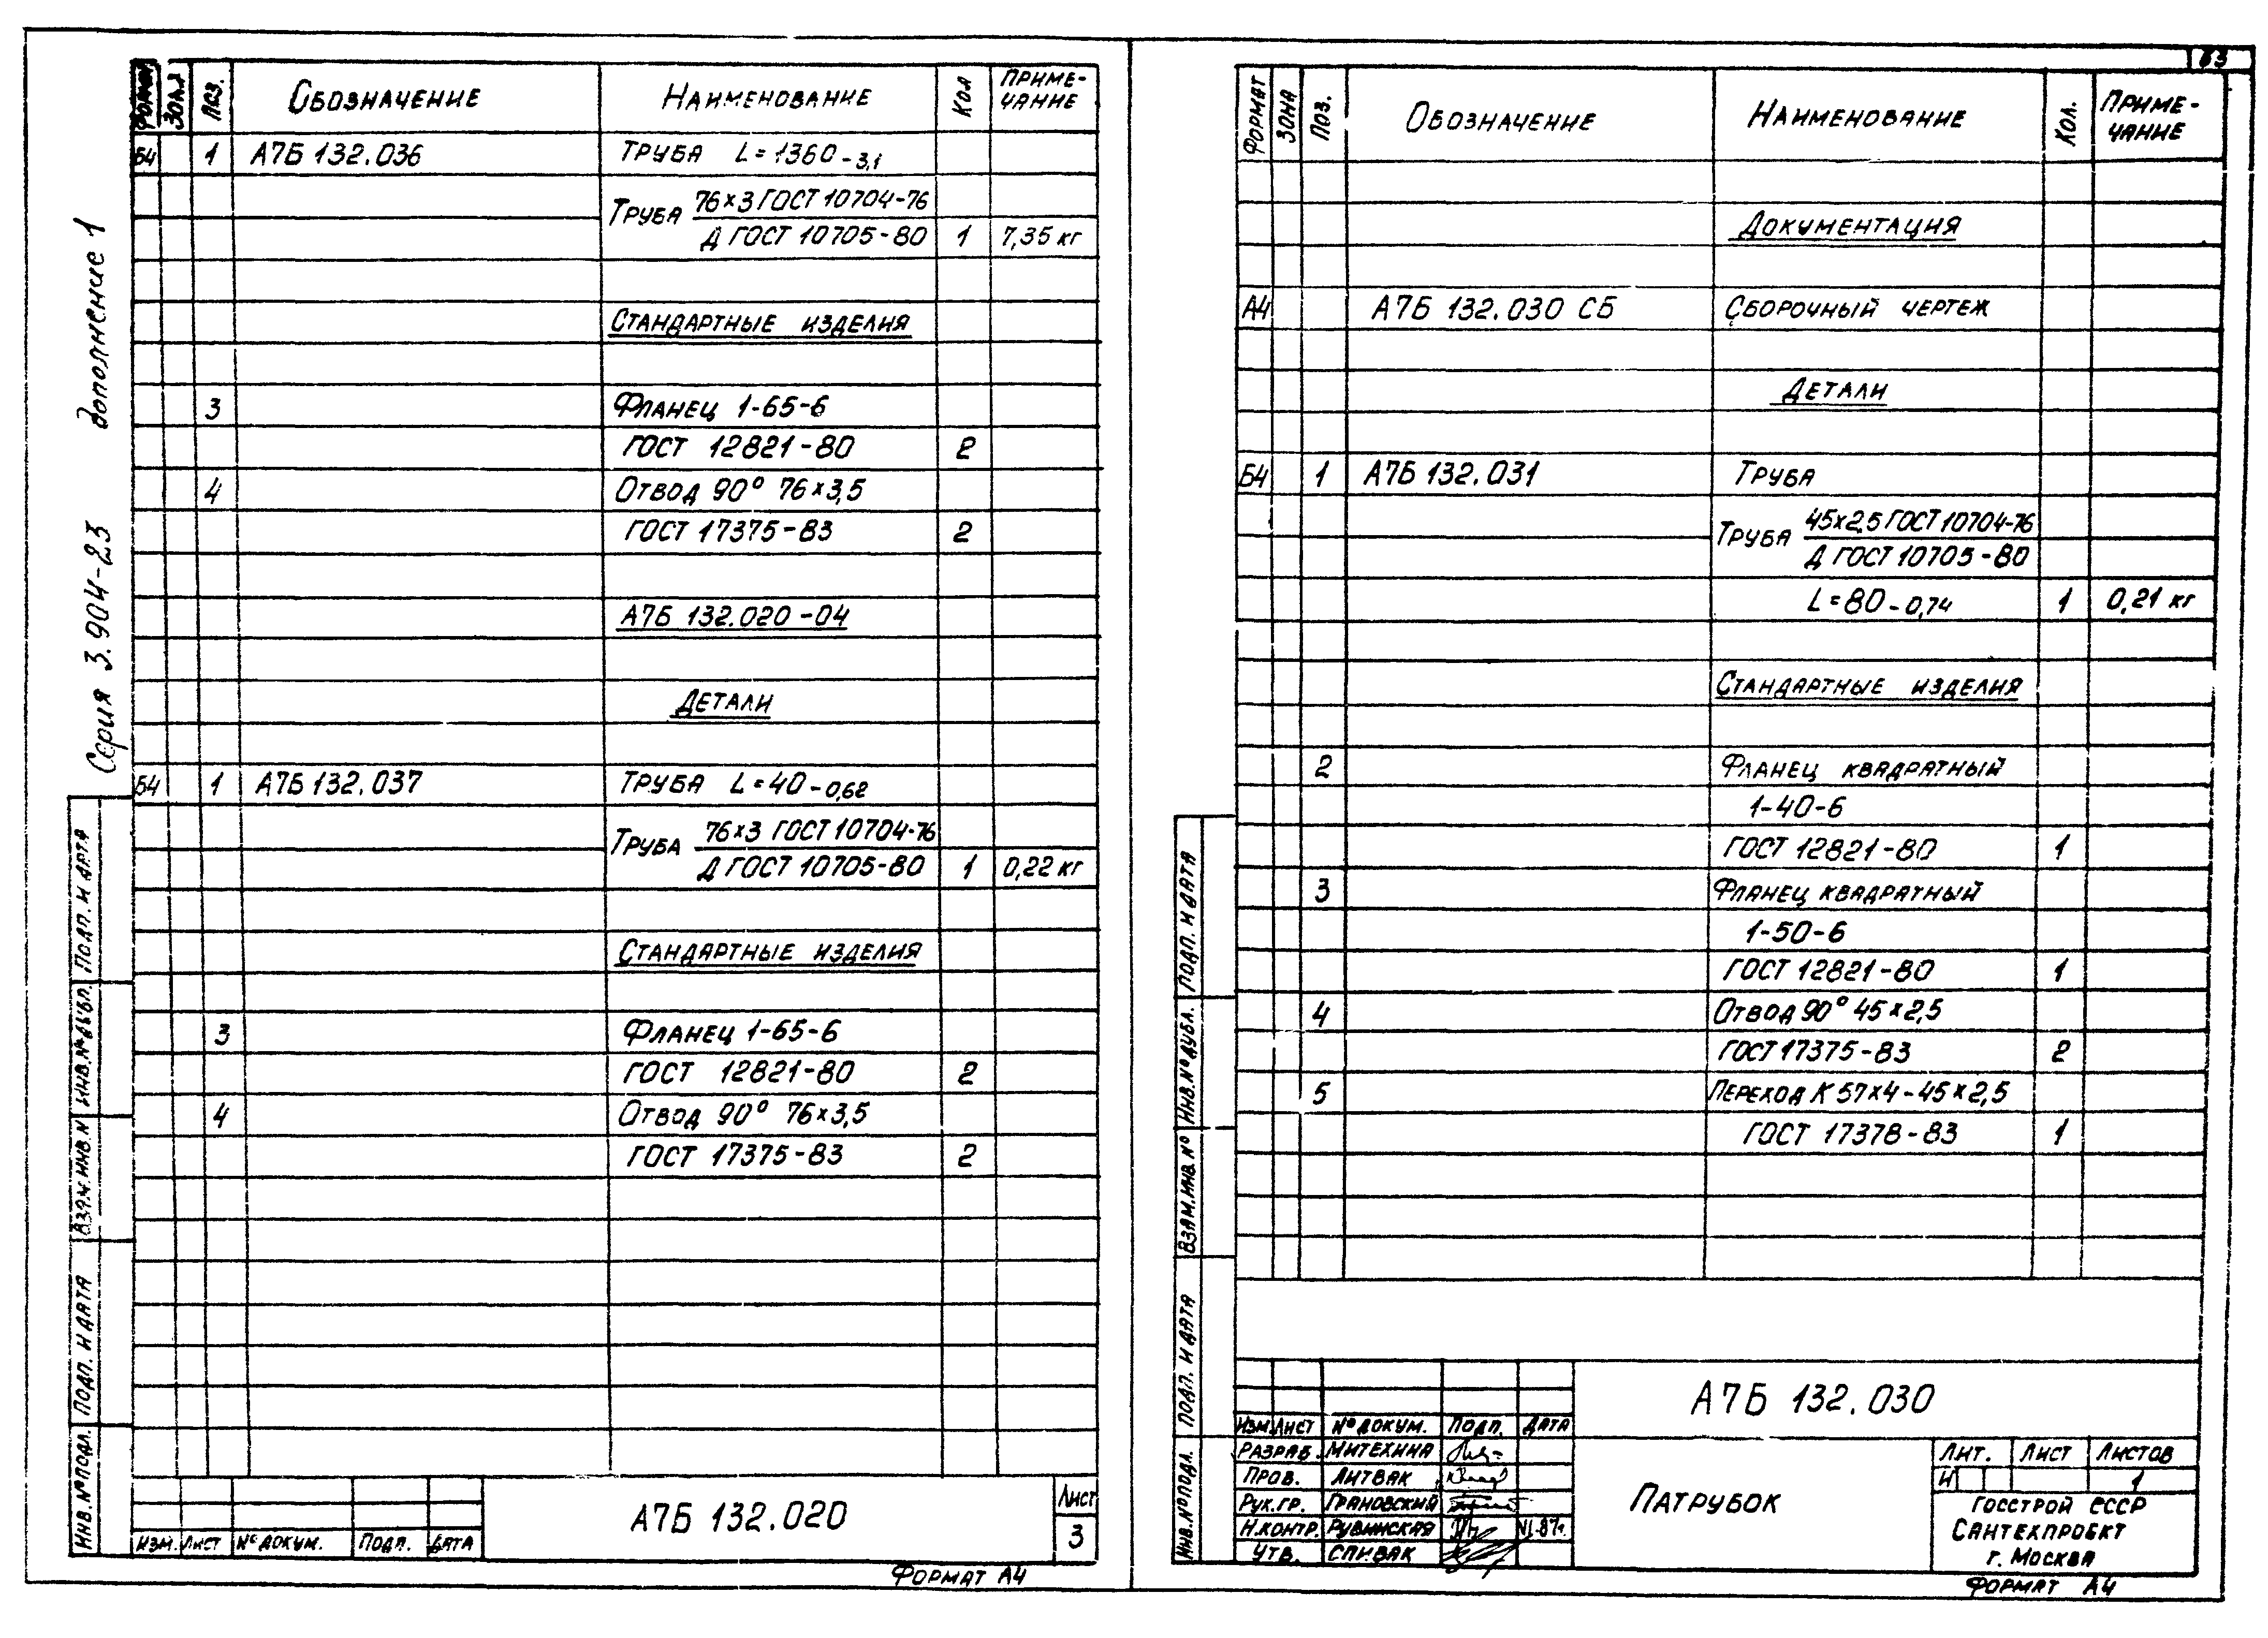 Серия 3.904-23 дополнение 1
Формат Зона Поз. Обозначение Наименование Кол Приме-
чание
Б4 1 А7Б 132.036 Труба L=1360-3,1
Труба 76×3 ГОСТ 10704-76
Д ГОСТ 10705-80 1 7,35 кг
Стандартные изделия
3 Фланец 1-65-6
ГОСТ 12821-80 2
4 Отвод 90° 76×3,5
ГОСТ 17375-83 2
А7Б 132.020-04
Детали
Б4 1 А7Б 132.037 Труба L=40-0,62
Труба 76×3 ГОСТ 10704-76
Д ГОСТ 10705-80 1 0,22 кг
Стандартные изделия
3 Фланец 1-65-6
ГОСТ 12821-80 2
4 Отвод 90° 76×3,5
ГОСТ 17375-83 2
Инв.№ подл. Подп. и дата Взам.инв.№ Инв.№ дубл. Подп. и дата
Изм. Лист № докум. Подп. Дата
А7Б 132.020
Лист
3
Формат А4
63
Формат Зона Поз. Обозначение Наименование Кол. Приме-
чание
Документация
А4 А7Б 132.030 СБ Сборочный чертеж
Детали
Б4 1 А7Б 132.031 Труба
Труба 45×2,5 ГОСТ 10704-76
Д ГОСТ 10705-80
L=80-0,74 1 0,21 кг
Стандартные изделия
2 Фланец квадратный
1-40-6
ГОСТ 12821-80 1
3 Фланец квадратный
1-50-6
ГОСТ 12821-80 1
4 Отвод 90° 45×2,5
ГОСТ 17375-83 2
5 Переход К 57×4-45×2,5
ГОСТ 17378-83 1
Инв.№ подл. Подп. и дата Взам.инв.№ Инв.№ дубл. Подп. и дата
А7Б 132.030
Изм. Лист № докум. Подп. Дата
Разраб. Митехина
Пров. Литвак
Рук.гр. Грановский
Н.контр. Рувинская VI-87г.
Утв. Спивак
Патрубок
Лит. Лист Листов
И 1
Госстрой СССР
Сантехпроект
г. Москва
Формат А4